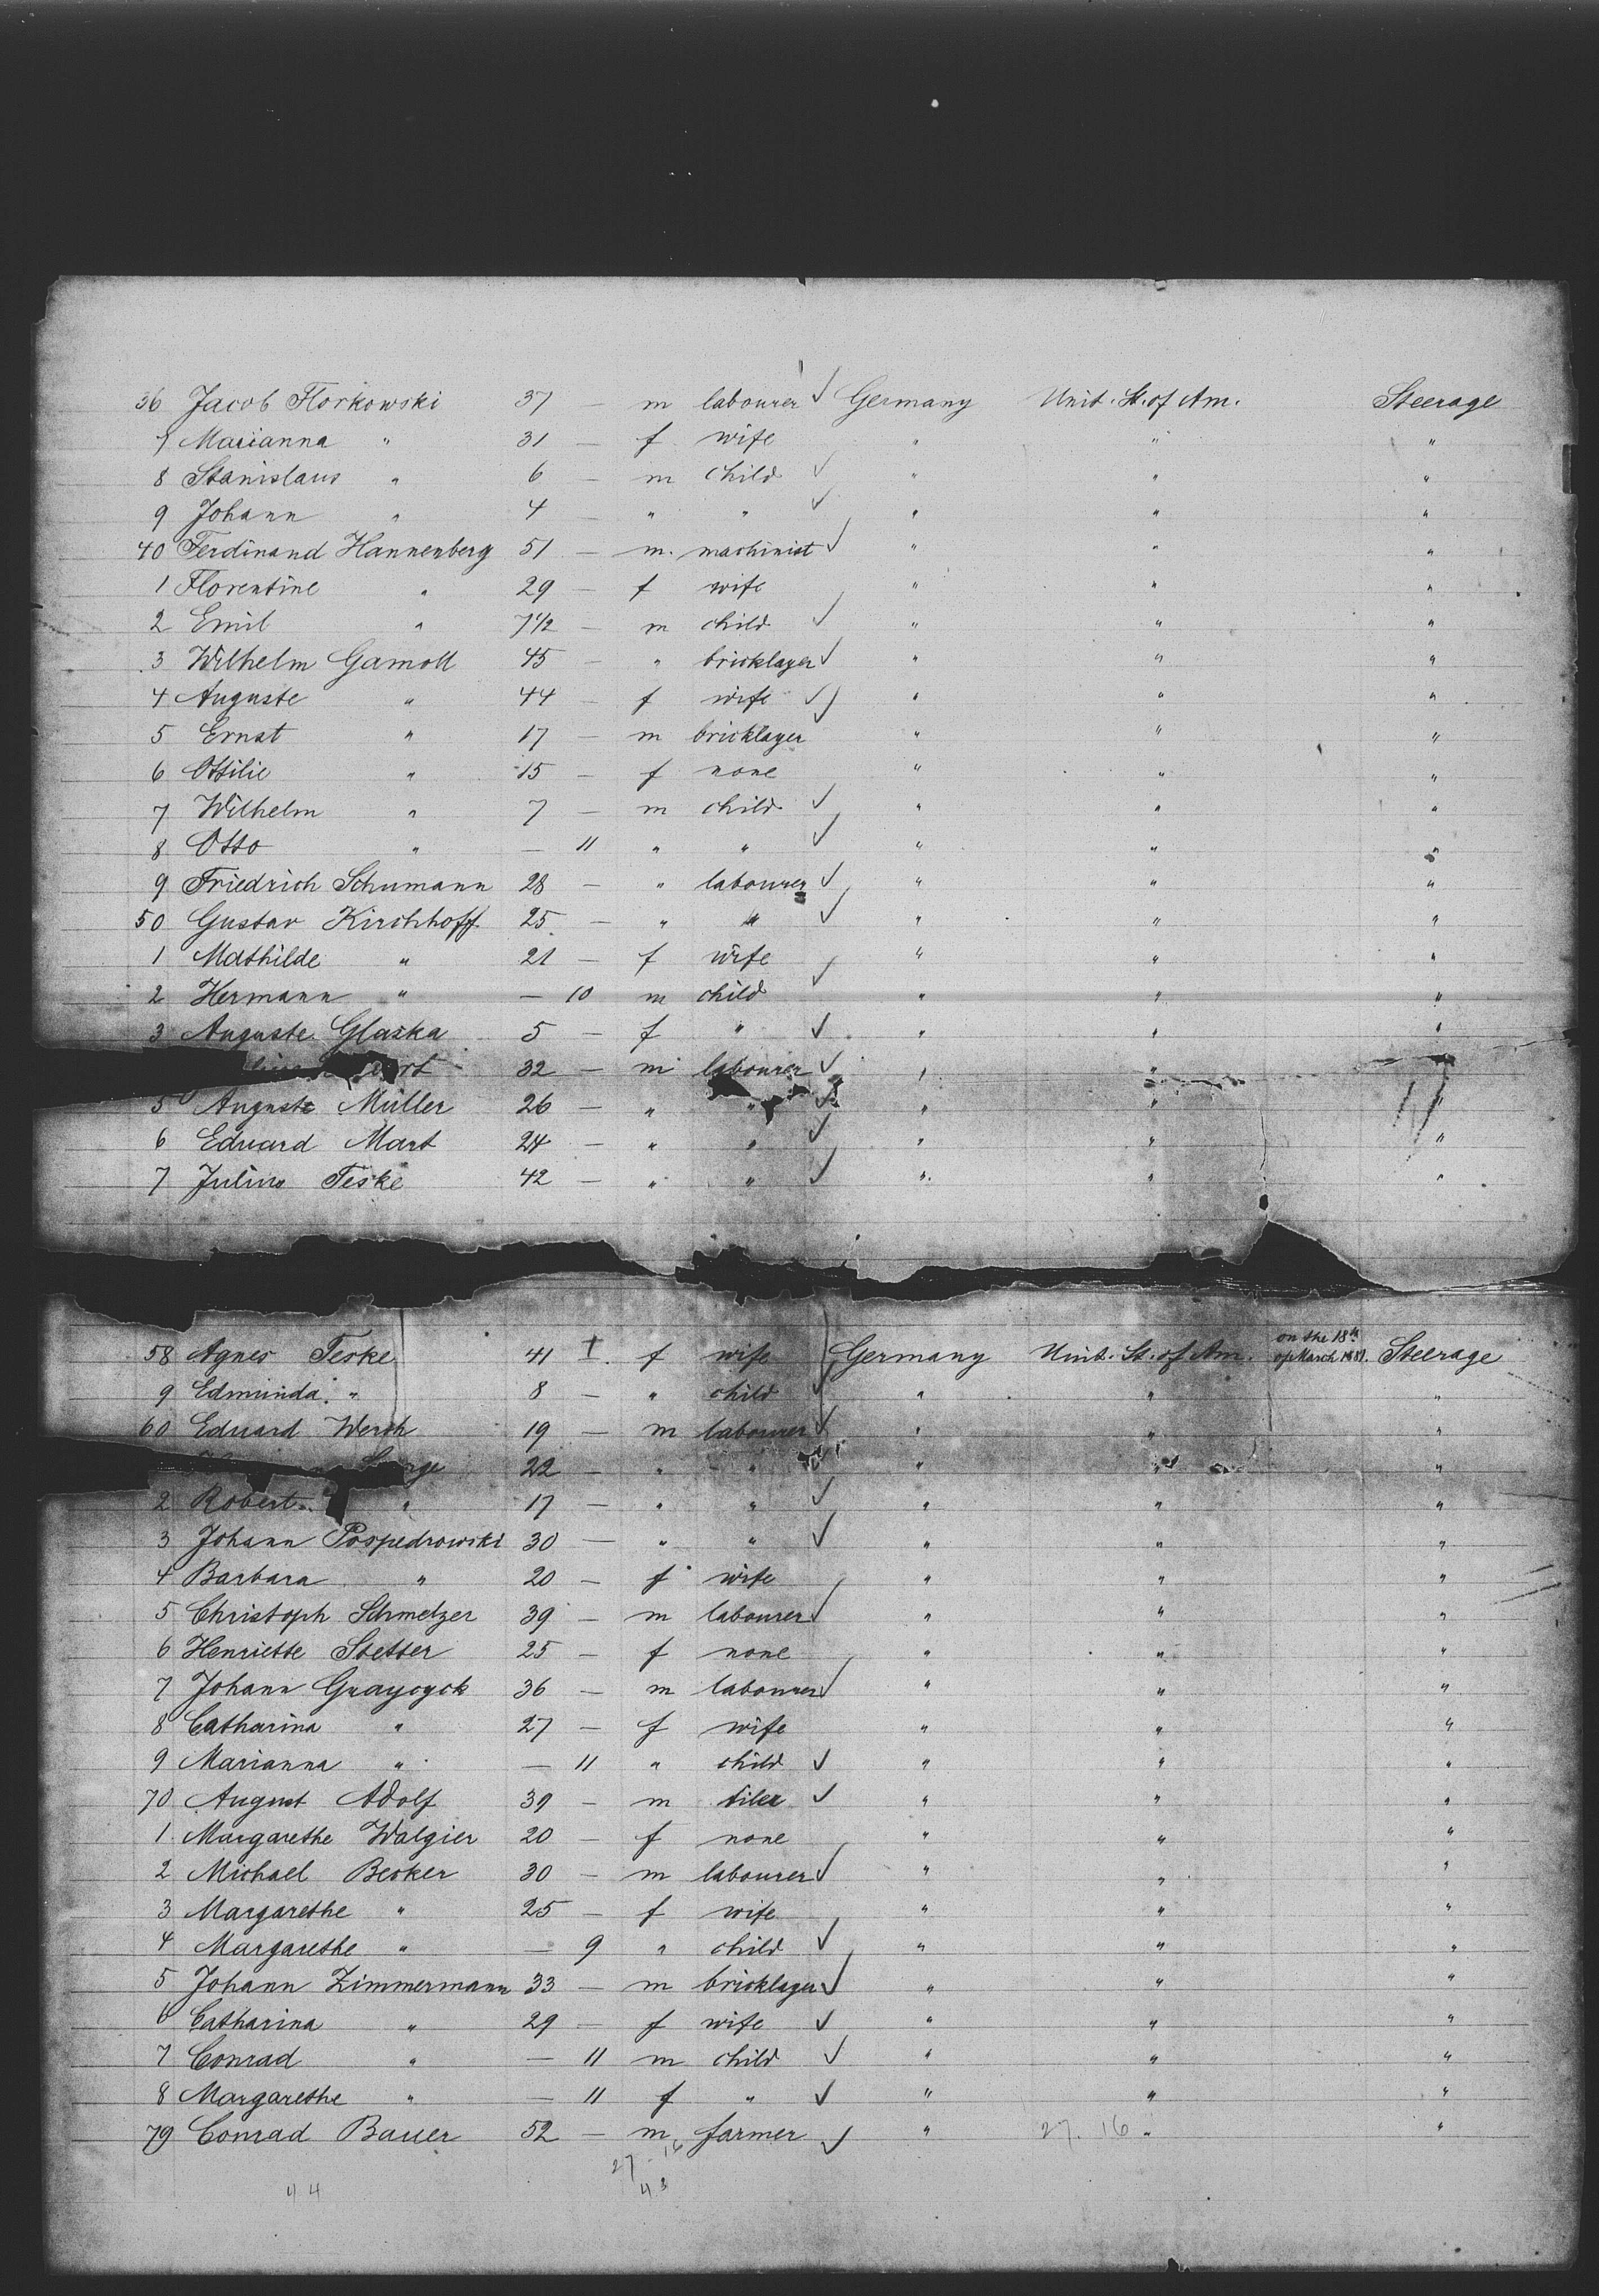 36 Jacob Florkowski 37 — m labourer ✓ Germany Unit. St. of Am. Steerage
7 Marianna " 31 — f wife " " "
8 Stanislaus " 6 — m child ✓ " " "
9 Johann " 4 — " " ✓ " " "
40 Ferdinand Hannenberg 51 — m. machinist ✓ " " "
1 Florentine " 29 — f wife " " "
2 Emil " 7 1/2 — m child ✓ " " "
3 Wilhelm Gamoll 45 — " bricklayer ✓ " " "
4 Auguste " 44 — f wife ✓ " " "
5 Ernst " 17 — m bricklayer ✓ " " "
6 Ottilie " 15 — f none " " "
7 Wilhelm " 7 — m child ✓ " " "
8 Otto " — 11 " " ✓ " " "
9 Friedrich Schumann 28 — " labourer ✓ " " "
50 Gustav Kirchhoff 25 — " " ✓ " " "
1 Mathilde " 21 — f wife " " "
2 Hermann " — 10 m child ✓ " " "
3 Auguste Glaska 5 — f " ✓ " " "
32 — m labourer ✓ " " "
5 August Müller 26 — " " ✓ " " "
6 Eduard Mart 24 — " " ✓ " " "
7 Julius Teske 42 — " " ✓ " " "
58 Agnes Teske 41 — f wife Germany Unit. St. of Am. on the 18th of March 1881. Steerage
9 Edmunda " 8 — " child ✓ " " "
60 Eduard Werth 19 — m labourer ✓ " " "
22 — " " ✓ " " "
2 Robert " 17 — " " ✓ " " "
3 Johann Pospedrowski 30 — " " ✓ " " "
4 Barbara " 20 — f wife " " "
5 Christoph Schmelzer 39 — m labourer ✓ " " "
6 Henriette Stetter 25 — f none " " "
7 Johann 36 — m labourer ✓ " " "
8 Catharina " 27 — f wife " " "
9 Marianna " — 11 " child ✓ " " "
70 August Adolf 39 — m tiler ✓ " " "
1 Margarethe Walgier 20 — f none " " "
2 Michael Becker 30 — m labourer ✓ " " "
3 Margarethe " 25 — f wife " " "
4 Margarethe " — 9 " child ✓ " " "
5 Johann Zimmermann 33 — m bricklayer ✓ " " "
6 Catharina " 29 — f wife ✓ " " "
7 Conrad " — 11 m child ✓ " " "
8 Margarethe " — 11 f " ✓ " " "
79 Conrad Bauer 52 — m farmer ✓ " 27. 16 " "
27 - 16
44 43